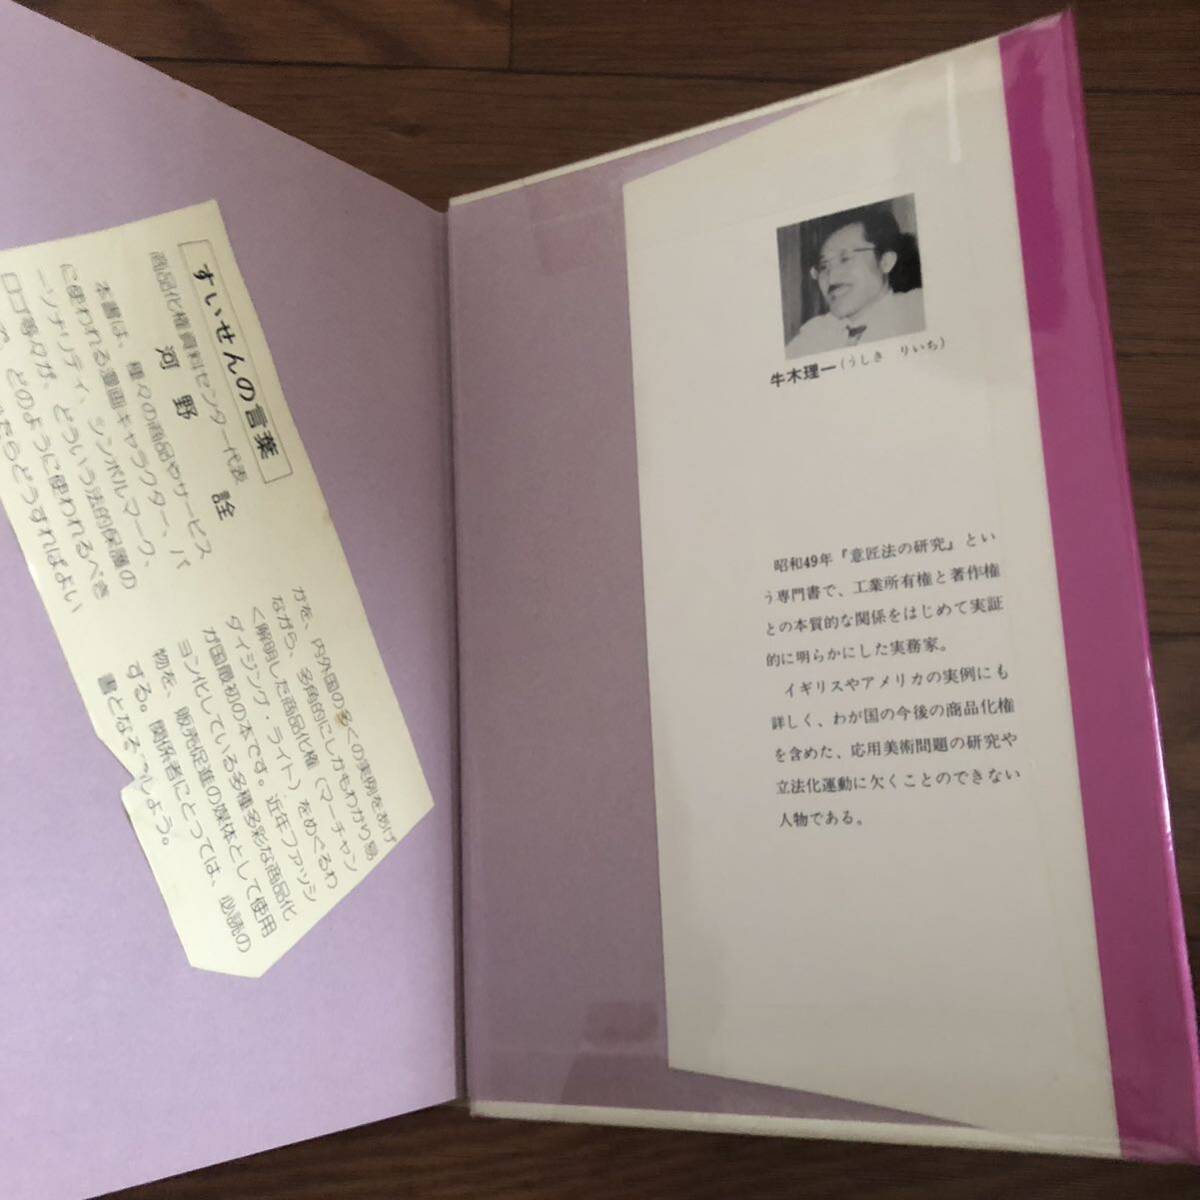 すいせんの言葉
商品化権資料センター代表
河野 詮
本書は、種々の商品やサービス
に使われる漫画キャラクター、パ
ーソナリティ、シンボルマーク、
ロゴ等々が、どういう法的保護の
で、どのように使われるべき
たらどうすればよい
かを、内外国の多くの実例をあげ
ながら、多角的にしかもわかり易
く解明した商品化権（マーチャン
ダイジング・ライト）をめぐるわ
が国最初の本です。近年ファッシ
ョン化している多種多彩な商品化
物を、販売促進の媒体として使用
する。関係者にとっては、必読の
書となるでしょう。
牛木理一(うしき りいち)
昭和49年『意匠法の研究』とい
う専門書で、工業所有権と著作権
との本質的な関係をはじめて実証
的に明らかにした実務家。
イギリスやアメリカの実例にも
詳しく、わが国の今後の商品化権
を含めた、応用美術問題の研究や
立法化運動に欠くことのできない
人物である。